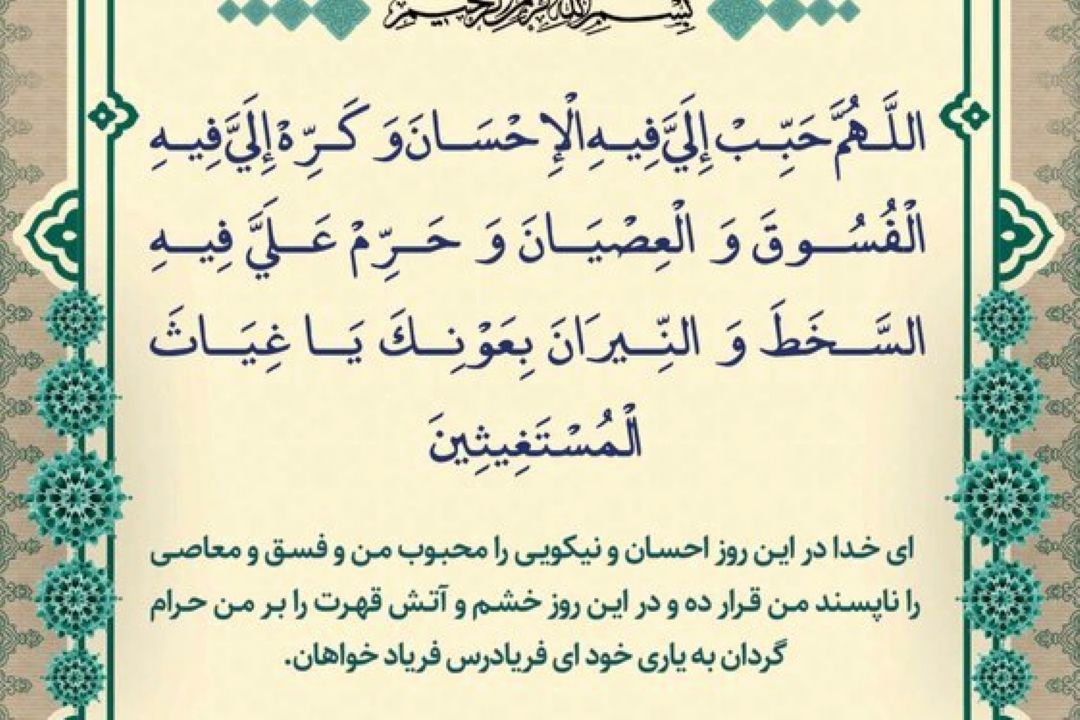 بسم الله الرحمن الرحیم
اللَّهُمَّ حَبِّبْ إِلَيَّ فِيهِ الْإِحْسَانَ وَ كَرِّهْ إِلَيَّ فِيهِ
الْفُسُوقَ وَ الْعِصْيَانَ وَ حَرِّمْ عَلَيَّ فِيهِ
السَّخَطَ وَ النِّيرَانَ بِعَوْنِكَ يَا غِيَاثَ
الْمُسْتَغِيثِينَ
ای خدا در این روز احسان و نیکویی را محبوب من و فسق و معاصی
را ناپسند من قرار ده و در این روز خشم و آتش قهرت را بر من حرام
گردان به یاری خود ای فریادرس فریاد خواهان.